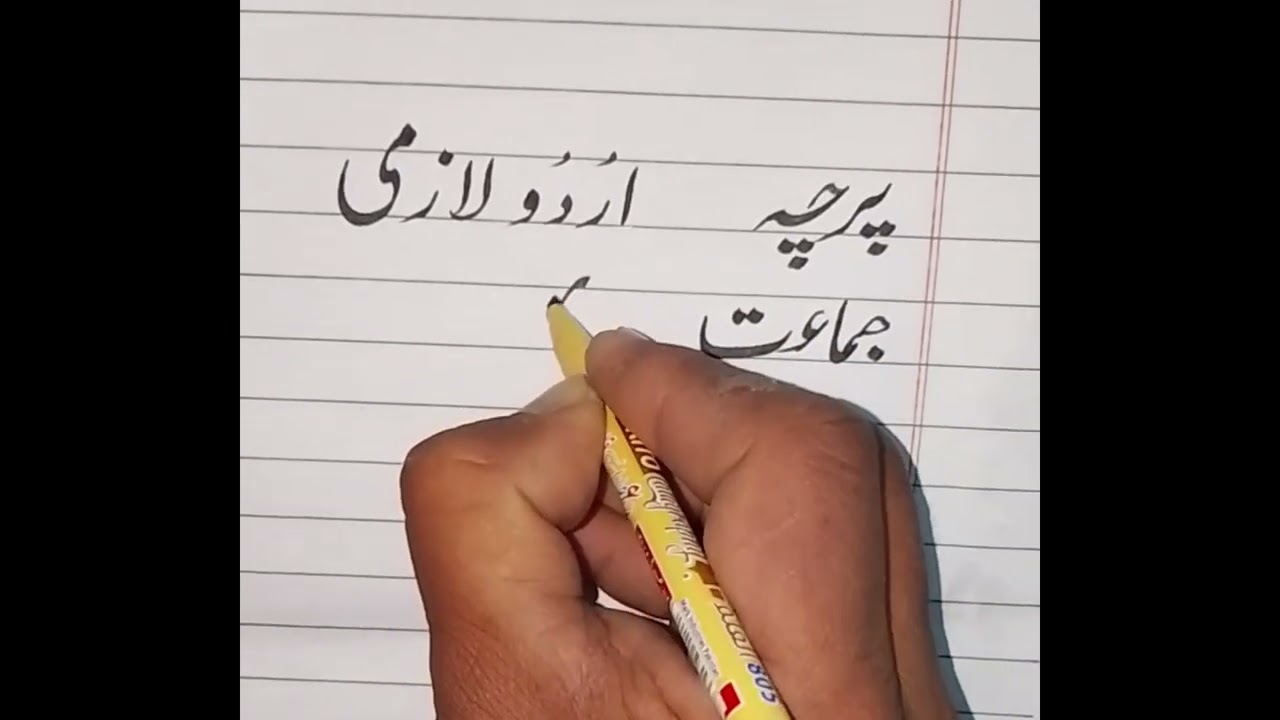 پرچہ اُردُو لازمی
جماعت
805